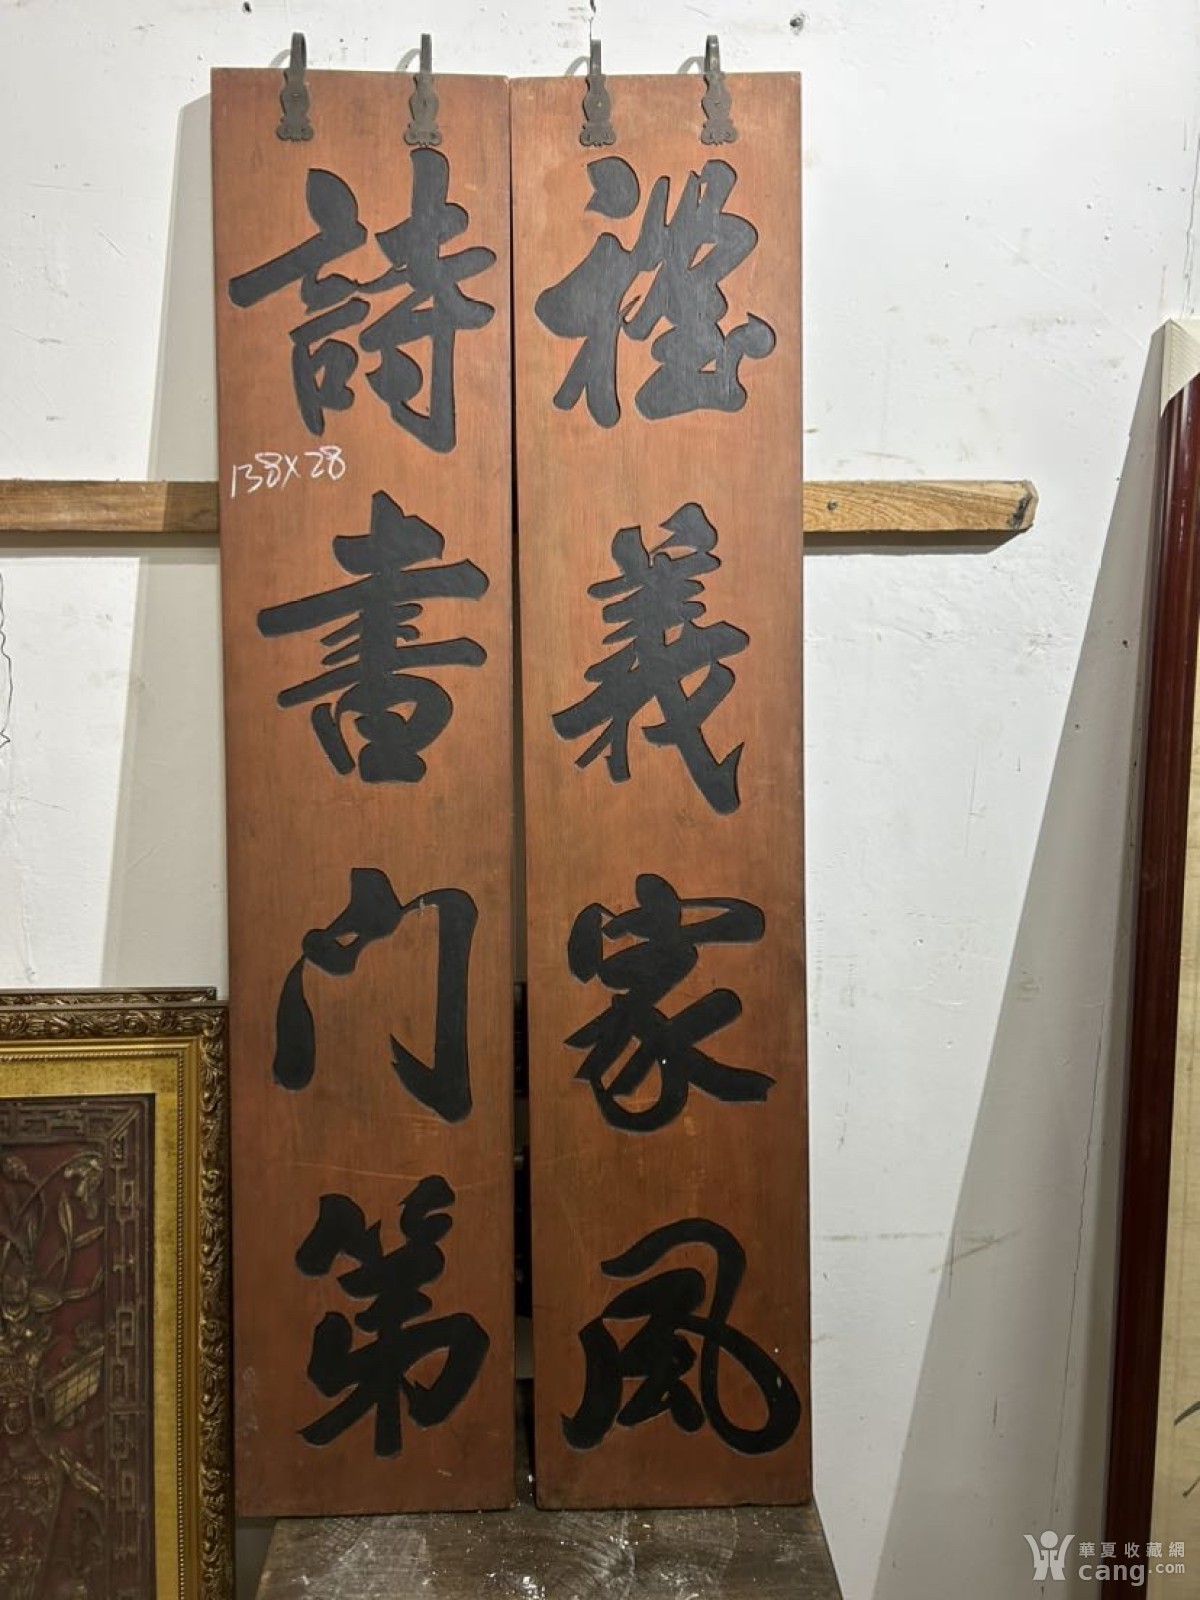 禮義家風
詩書門第
138X28
華夏收藏網
cang.com